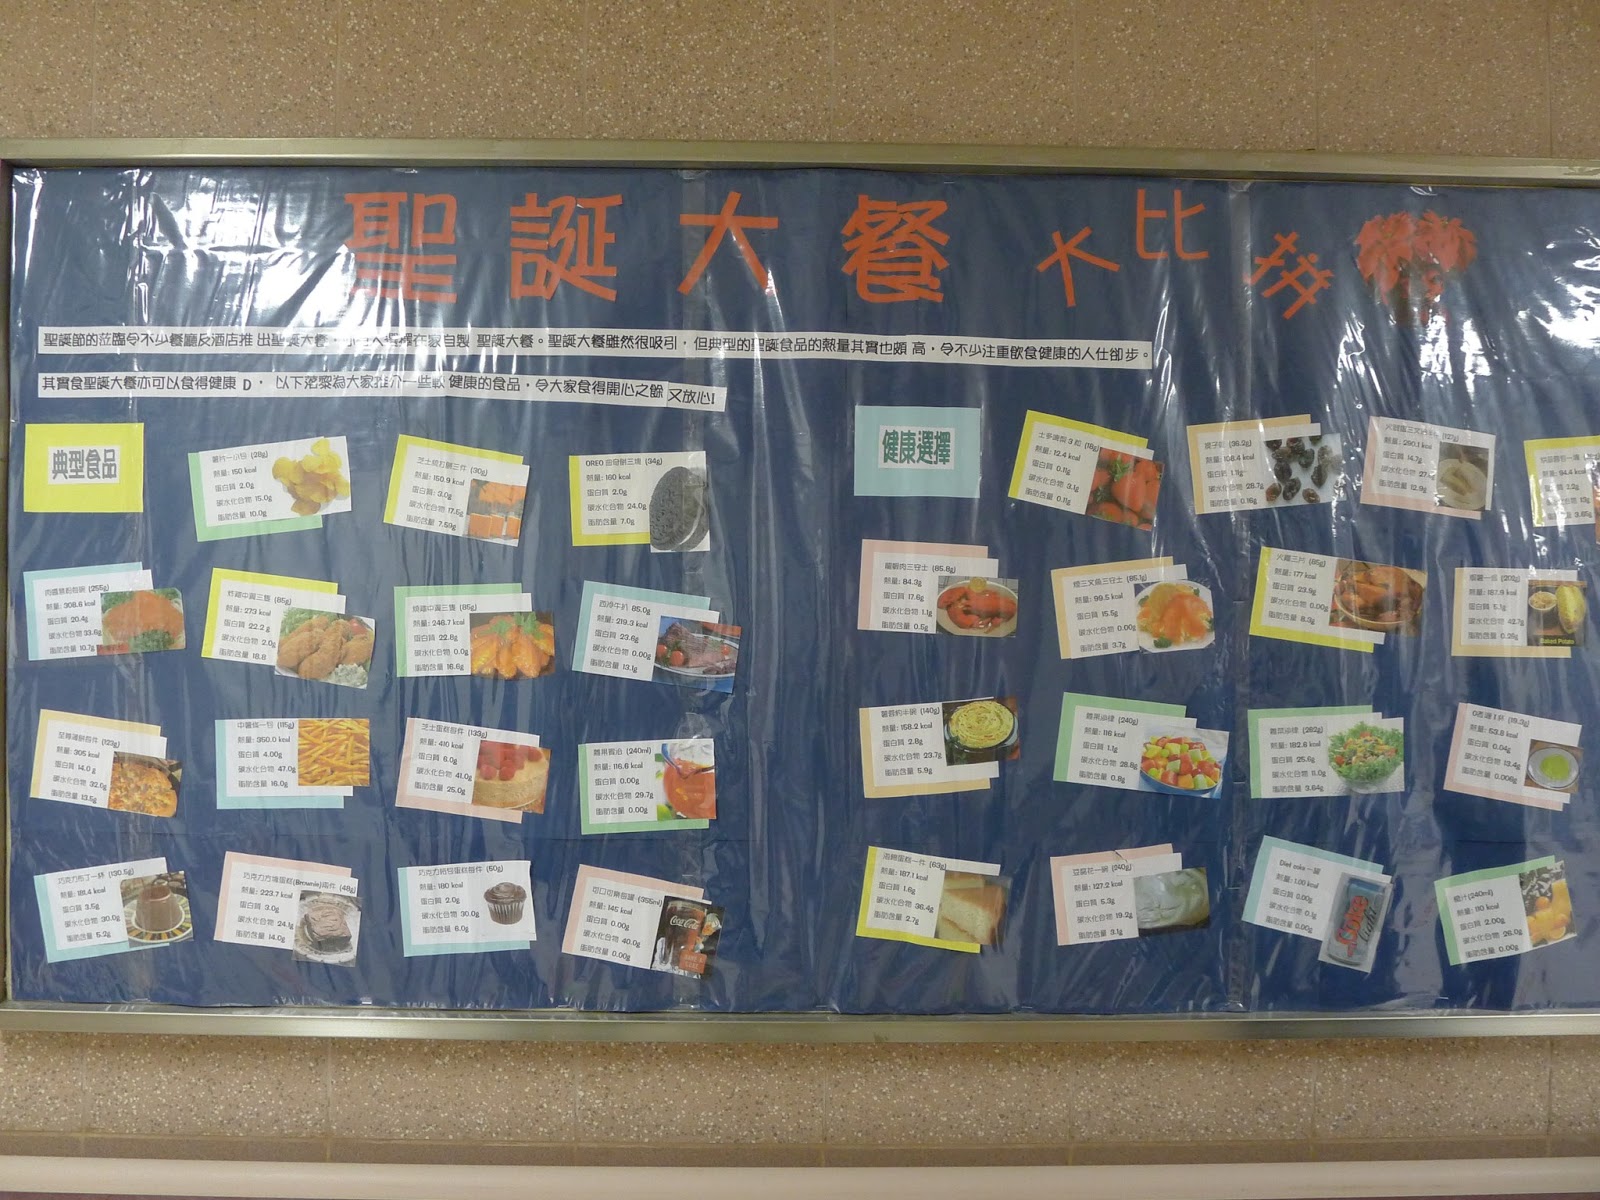 聖誕大餐大比拼
聖誕節的蒞臨令不少餐廳及酒店推出聖誕大餐，在家自製聖誕大餐。聖誕大餐雖然很吸引，但典型的聖誕食品的熱量其實也頗高，令不少注重飲食健康的人仕卻步。
其實食聖誕大餐亦可以食得健康D，以下為大家推介一些健康的食品，令大家食得開心之餘又放心!
典型食品
薯片一小包 (28g)
熱量: 150 kcal
蛋白質 2.0g
碳水化合物 15.0g
脂肪含量 10.0g
芝士梳打餅三件 (30g)
熱量: 150.9 kcal
蛋白質: 3.0g
碳水化合物 17.5g
脂肪含量 7.59g
OREO 曲奇餅三塊 (34g)
熱量: 160 kcal
蛋白質 2.0g
碳水化合物 24.0g
脂肪含量 7.0g
肉醬意粉每碗 (255g)
熱量: 308.6 kcal
蛋白質 20.4g
碳水化合物 33.6g
脂肪含量 10.7g
炸雞中翼三隻 (85g)
熱量: 273 kcal
蛋白質 22.2 g
碳水化合物 2.0g
脂肪含量 18.8
燒雞中翼三隻 (85g)
熱量: 246.7 kcal
蛋白質 22.8g
碳水化合物 0.0g
脂肪含量 16.6g
西冷牛扒 85.0g
熱量: 219.3 kcal
蛋白質: 23.6g
碳水化合物 0.00g
脂肪含量 13.1g
至尊薄餅每件 (123g)
熱量: 305 kcal
蛋白質: 14.0 g
碳水化合物 32.0g
脂肪含量 13.5g
中薯條一包 (115g)
熱量: 350.0 kcal
蛋白質: 4.00g
碳水化合物 47.0g
脂肪含量 16.0g
芝士蛋糕每件 (133g)
熱量: 410 kcal
蛋白質 6.0g
碳水化合物 41.0g
脂肪含量 25.0g
雜果賓治 (240ml)
熱量: 116.6 kcal
蛋白質 0.00g
碳水化合物 29.7g
脂肪含量 0.00g
巧克力布丁一杯 (130.5g)
熱量: 181.4 kcal
蛋白質 3.5g
碳水化合物 30.0g
脂肪含量 5.2g
巧克力方塊蛋糕(Brownie)兩件 (48g)
熱量: 223.7 kcal
蛋白質 3.0g
碳水化合物 24.1g
脂肪含量 14.0g
巧克力紙包蛋糕每件 (50g)
熱量: 180 kcal
蛋白質: 2.0g
碳水化合物 30.0g
脂肪含量 6.0g
可口可樂每罐 (355ml)
熱量: 145 kcal
蛋白質 0.00g
碳水化合物 40.0g
脂肪含量 0.00g
Coca-Cola
健康選擇
士多啤梨 3 粒 (18g)
熱量: 12.4 kcal
蛋白質: 0.11g
碳水化合物 3.1g
脂肪含量: 0.11g
熱量: 108.4 kcal
碳水化合物 28.7g
脂肪含量 0.16g
熱量: 290.1 kcal
蛋白質 14.7g
脂肪含量 12.9g
熱量: 84.3g
蛋白質: 17.6g
碳水化合物: 1.1g
脂肪含量: 0.5g
煙三文魚三安士 (85.1g)
熱量: 99.5 kcal
蛋白質: 15.5g
碳水化合物 0.00g
脂肪含量: 3.7g
火雞三片 (85g)
熱量: 177 kcal
蛋白質 23.9g
碳水化合物 0.00g
脂肪含量 8.3g
焗薯一個 (202g)
熱量: 187.9 kcal
蛋白質 5.1g
碳水化合物 42.7g
Baked Potato
薯蓉約半碗 (140g)
熱量: 158.2 kcal
蛋白質 2.8g
碳水化合物 23.7g
脂肪含量 5.9g
雜果沙律 (240g)
熱量: 116 kcal
蛋白質 1.1g
碳水化合物 28.8g
脂肪含量: 0.8g
雜菜沙律 (262g)
熱量: 182.6 kcal
蛋白質: 25.6g
碳水化合物 11.0g
脂肪含量: 3.64g
熱量: 53.8 kcal
蛋白質: 0.04g
碳水化合物 13.4g
脂肪含量 0.006g
海綿蛋糕一件 (63g)
熱量: 187.1 kcal
蛋白質 1.6g
碳水化合物 36.4g
脂肪含量 2.7g
豆腐花一碗 (240g)
熱量: 127.2 kcal
蛋白質 5.3g
碳水化合物 19.2g
脂肪含量: 3.1g
Diet coke 一罐
熱量: 1.00 kcal
蛋白質 0.00g
碳水化合物 0.1g
脂肪含量: 0.00g
橙汁 (240ml)
熱量: 110 kcal
蛋白質 2.00g
碳水化合物 26.0g
脂肪含量 0.00g